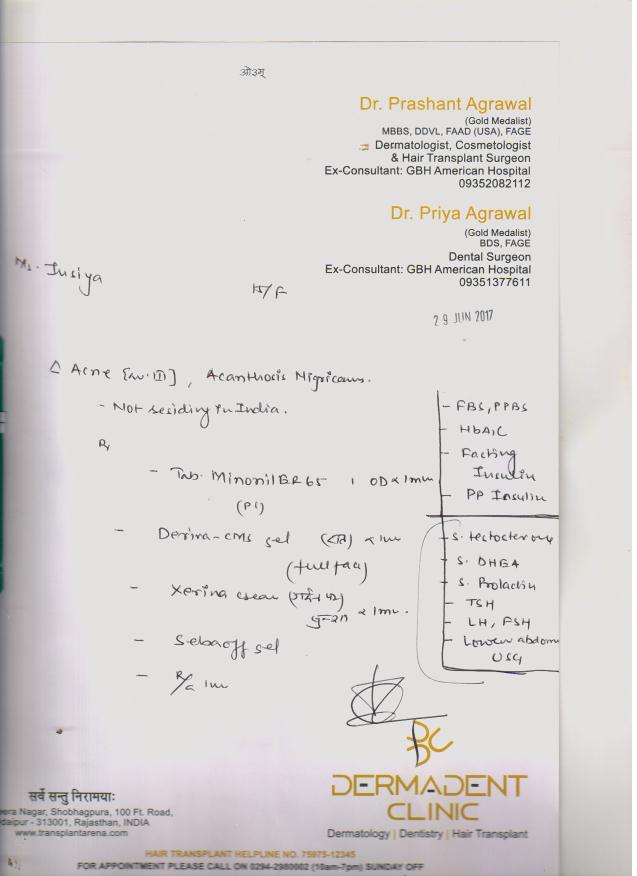 ओ३म्
Dr. Prashant Agrawal
(Gold Medalist)
MBBS, DDVL, FAAD (USA), FAGE
Dermatologist, Cosmetologist
& Hair Transplant Surgeon
Ex-Consultant: GBH American Hospital
09352082112
Dr. Priya Agrawal
(Gold Medalist)
BDS, FAGE
Dental Surgeon
Ex-Consultant: GBH American Hospital
09351377611
Ms. Insiya
/F
29 JUN 2017
Δ Acne [Gr. II], Acanthosis Nigricans.
- Not residing in India.
Rx
- Tab. Minonil ER 65 1 OD x 1m
- Deriva-CMS gel (रात) x 1m
(full face)
- Xerina cream (गर्दन पर) x 1m.
- Sebaoff gel
- R/a 1m
- FBS, PPBS
- HbA1C
- Fasting
Insulin
- PP Insulin
- S. testosterone
- S. DHEA
- S. Prolactin
- TSH
- LH, FSH
- Lower abdom
USG
DERMADENT
CLINIC
Dermatology | Dentistry | Hair Transplant
सर्वे सन्तु निरामयाः
era Nagar, Shobhagpura, 100 Ft. Road,
daipur - 313001, Rajasthan, INDIA
www.transplantarena.com
HAIR TRANSPLANT HELPLINE NO. 75975-12345
FOR APPOINTMENT PLEASE CALL ON 0294-2980002 (10am-7pm) SUNDAY OFF